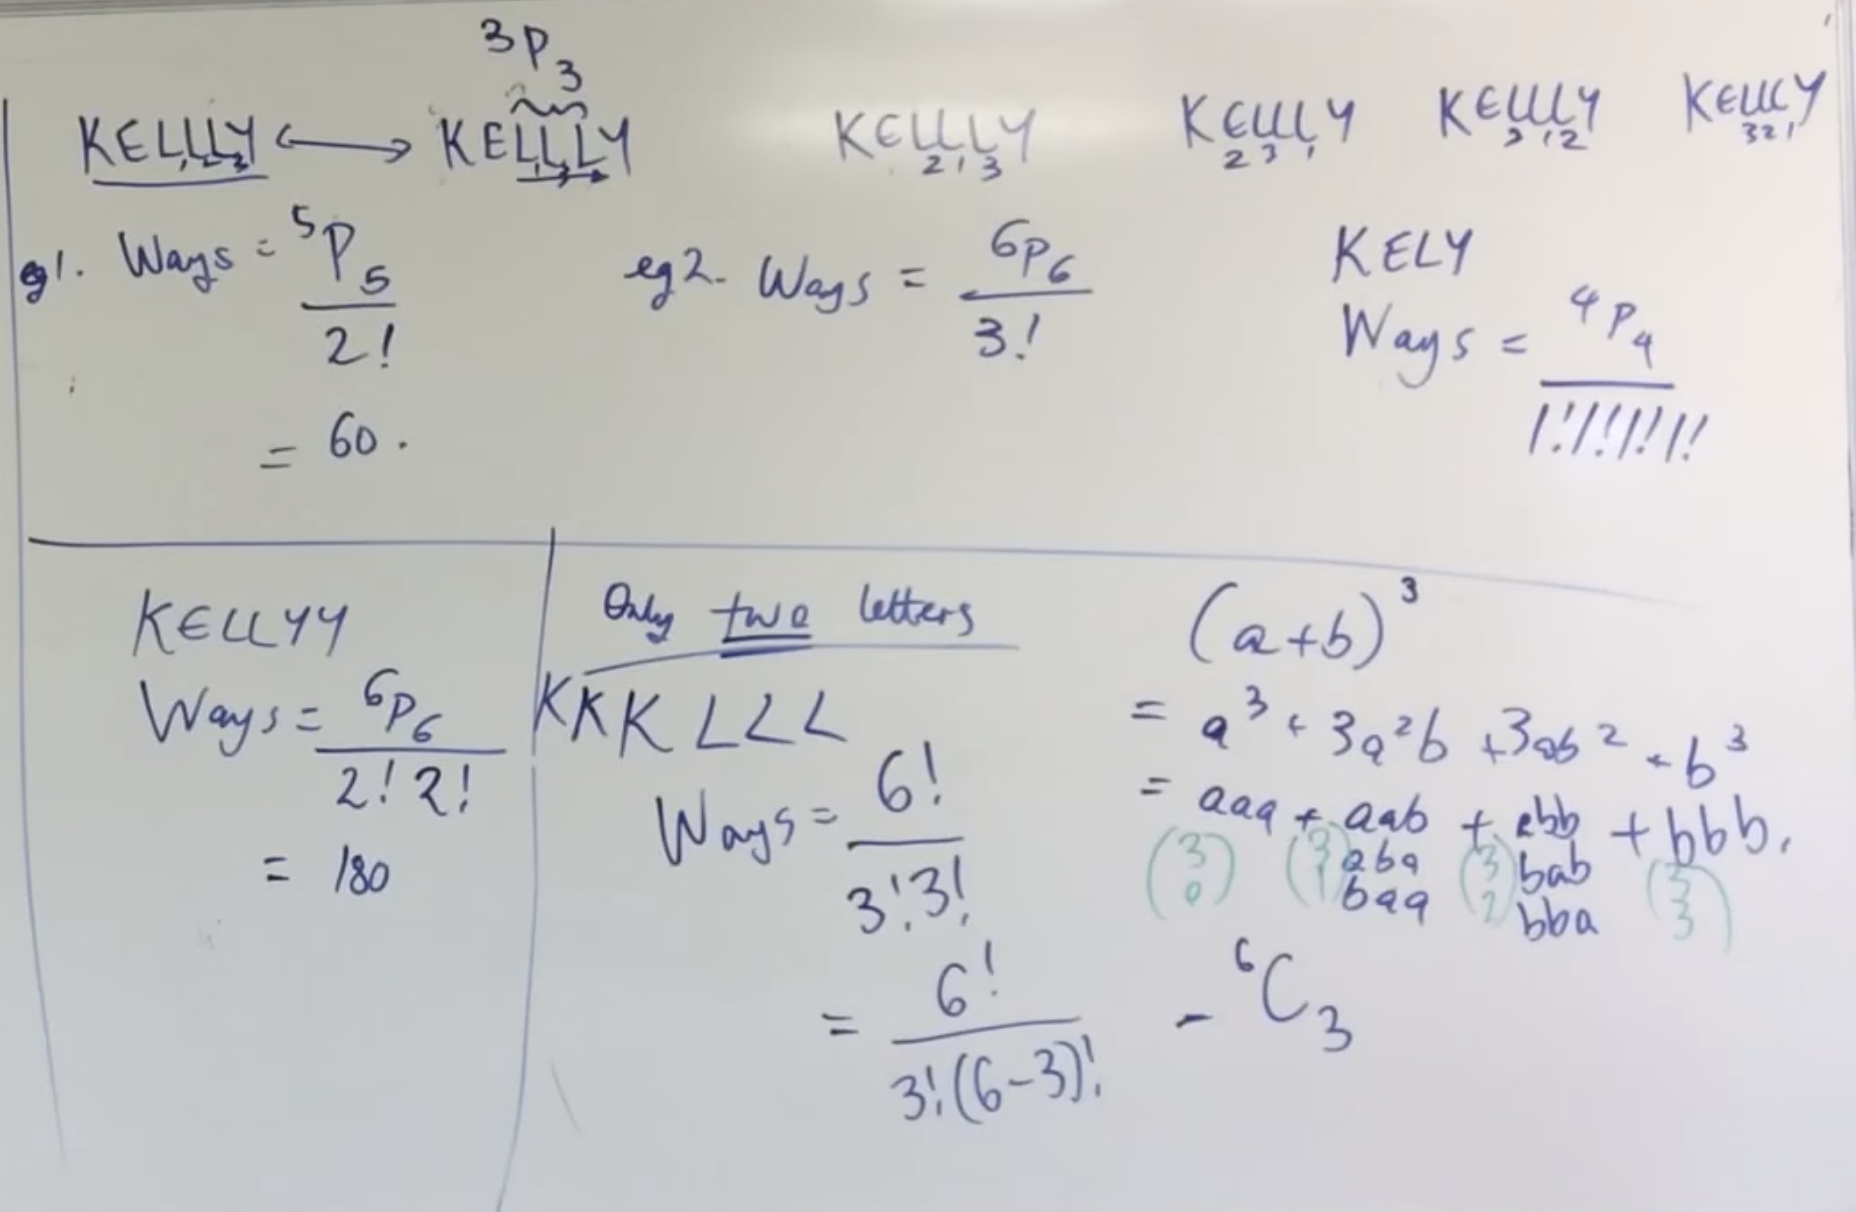 ³P₃
KELLLY ⟷ KELLLY KELLLY KELLLY KELLLY KELLLY
1 2 3 1 2 3 2 1 3 2 3 1 3 1 2 3 2 1
eg1. Ways = ⁵P₅ / 2!
= 60.
eg2. Ways = ⁶P₆ / 3!
KELY
Ways = ⁴P₄ / 1!1!1!1!
KELLYY
Ways = ⁶P₆ / 2!2!
= 180
Only two letters
KKKLLL
Ways = 6! / 3!3!
= 6! / 3!(6-3)! = ⁶C₃
(a+b)³
= a³ + 3a²b + 3ab² + b³
= aaa + aab + abb + bbb.
(3 0) (3 1) aba (3 2) bab (3 3)
baa bba